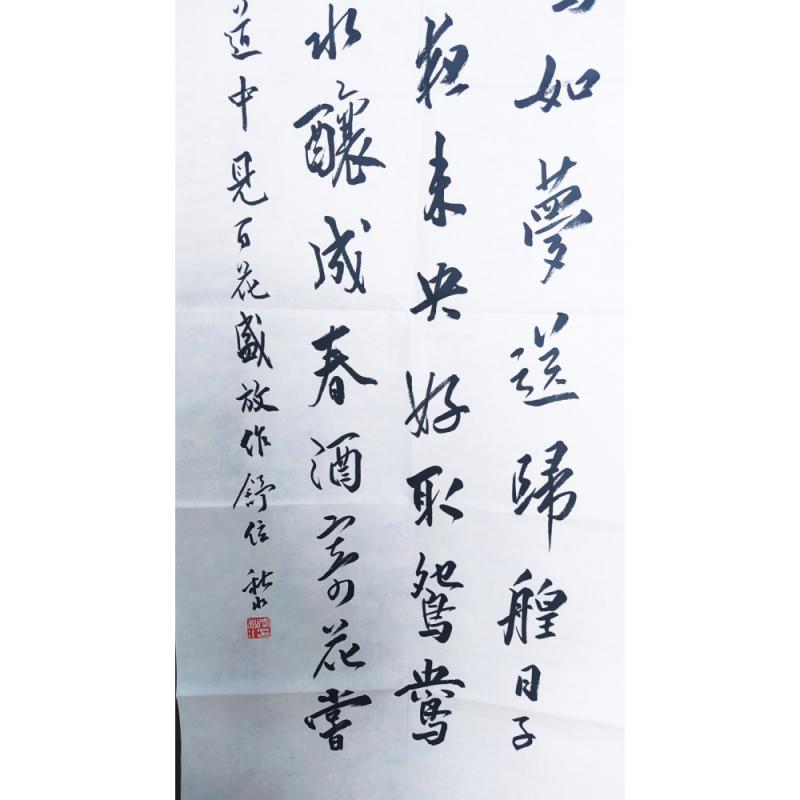 如夢送歸艎日子
夜未央好取鴛鴦
水釀成春酒寄花嘗
道中見百花盛放作舒信秋水